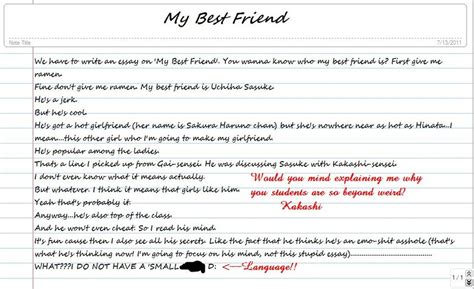 My Best Friend
Note Title
7/13/2011
We have to write an essay on 'My Best Friend'. You wanna know who my best friend is? First give me
ramen.
Fine don't give me ramen. My best friend is Uchiha Sasuke.
He's a jerk.
But he's cool.
He's got a hot girlfriend (her name is Sakura Haruno chan) but she's nowhere near as hot as Hinata...I
mean....this other girl who I'm going to make my girlfriend.
He's popular among the ladies.
Thats a line I picked up from Gai-sensei. He was discussing Sasuke with Kakashi-sensei.
I don't even know what it means actually.
But whatever. I think it means that girls like him.
Yeah that's probably it.
Anyway...he's also top of the class.
And he won't even cheat. So I read his mind.
It's fun cause then I also see all his secrets. Like the fact that he thinks he's an emo-shit asshole (that's
what he's thinking now! I'm going to focus on his mind, not this stupid essay)...............
WHAT???I DO NOT HAVE A 'SMALL D:
Would you mind explaining me why
you students are so beyond weird?
Kakashi
<---Language!!
1/1